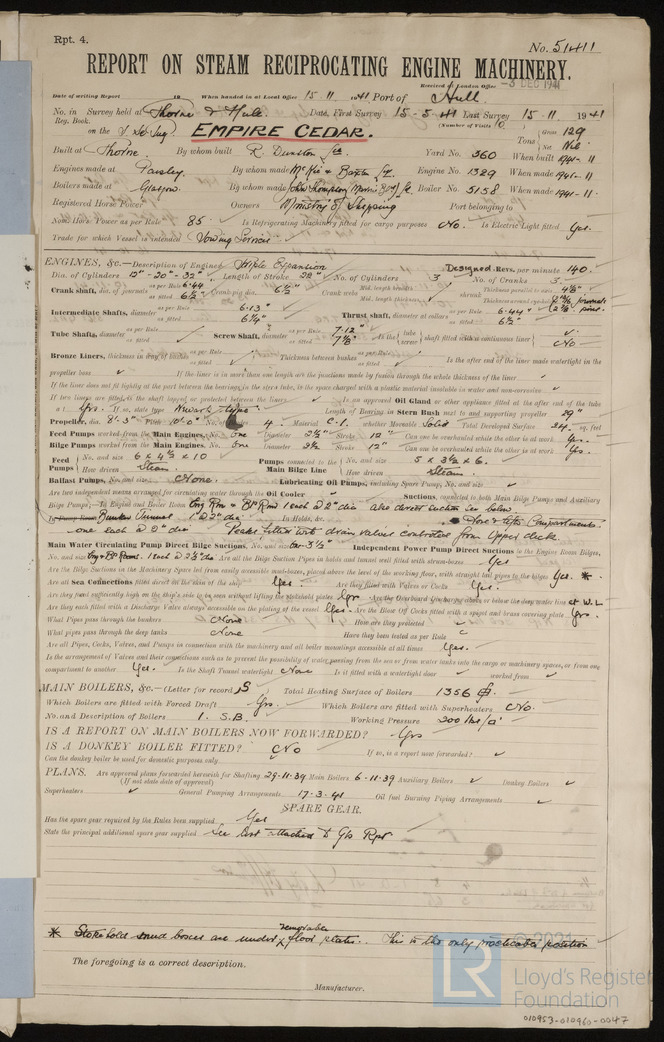 Rpt. 4.
No. 51411
REPORT ON STEAM RECIPROCATING ENGINE MACHINERY.
Received at London Office -3 DEC 1941
Date of writing Report 19 When handed in at Local Office 15.11.1941 Port of Hull
No. in Survey held at Thorne & Hull Date, First Survey 15-5-41 Last Survey 15-11-1941
Reg. Book. (Number of Visits 10)
on the EMPIRE CEDAR. Tons Gross 129 Net Nil
Built at Thorne By whom built R. Dunston Ltd Yard No. 360 When built 1941-11
Engines made at Paisley By whom made McKie & Baxter Ltd Engine No. 1329 When made 1941-11
Boilers made at Glasgow By whom made Boiler No. 5158 When made 1941-11
Registered Horse Power Owners Ministry of Shipping Port belonging to
Nom. Horse Power as per Rule 85 Is Refrigerating Machinery fitted for cargo purposes No. Is Electric Light fitted Yes.
Trade for which Vessel is intended Towing Service
ENGINES, &c.—Description of Engines Triple Expansion Designed Revs. per minute 140.
Dia. of Cylinders 12"-20"-32" Length of Stroke No. of Cylinders 3 No. of Cranks 3
Crank shaft, dia. of journals as per Rule 6.44 as fitted 6½" Crank pin dia. 6½" Crank webs Mid. length breadth Mid. length thickness shrunk Thickness parallel to axis 4⅛"
Intermediate Shafts, diameter as per Rule 6.13" as fitted 6¼" Thrust shaft, diameter at collars as per Rule 6.44" as fitted 6½"
Tube Shafts, diameter as per Rule as fitted Screw Shaft, diameter as per Rule 7.12" as fitted 7⅛" Is the tube screw shaft fitted with a continuous liner No
Bronze Liners, thickness in way of bushes as per Rule as fitted Thickness between bushes as per Rule as fitted Is the after end of the liner made watertight in the
propeller boss If the liner is in more than one length are the junctions made by fusion through the whole thickness of the liner
If the liner does not fit tightly at the part between the bearings in the stern tube, is the space charged with a plastic material insoluble in water and non-corrosive
If two liners are fitted, is the shaft lapped or protected between the liners Is an approved Oil Gland or other appliance fitted at the after end of the tube
Yes. If so, state type Newark type Length of Bearing in Stern Bush next to and supporting propeller 29"
Propeller, dia. 8'-3" Pitch 10'-0" No. of blades 4. Material C.I. whether Moveable Solid Total Developed Surface 24 sq. feet
Feed Pumps worked from the Main Engines, No. One Diameter 2½" Stroke 12" Can one be overhauled while the other is at work Yes.
Bilge Pumps worked from the Main Engines, No. One Diameter 2½ Stroke 12" Can one be overhauled while the other is at work Yes.
Feed Pumps No. and size 6 x 4½ x 10 How driven Steam Pumps connected to the Main Bilge Line No. and size 5 x 3½ x 6. How driven Steam
Ballast Pumps, No. and size None Lubricating Oil Pumps, including Spare Pump, No. and size
Are two independent means arranged for circulating water through the Oil Cooler Suctions, connected to both Main Bilge Pumps and Auxiliary
Bilge Pumps;—In Engine and Boiler Room Eng Rm & Blr Room 1 each 2" dia also direct suction see below
Bunker Tunnel 1" 2" dia In Holds, &c. Fore & After Compartments.
one each 2" dia Peaks fitted with drain valves controlled from Upper deck.
Main Water Circulating Pump Direct Bilge Suctions, No. and size One-3½" Independent Power Pump Direct Suctions to the Engine Room Bilges,
No. and size Eng & Blr Room 1 each 2½" dia Are all the Bilge Suction Pipes in holds and tunnel well fitted with strum-boxes Yes
Are the Bilge Suctions in the Machinery Space led from easily accessible mud-boxes, placed above the level of the working floor, with straight tail pipes to the bilges Yes. *
Are all Sea Connections fitted direct on the skin of the ship Yes Are they fitted with Valves or Cocks Yes.
Are they fixed sufficiently high on the ship's side to be seen without lifting the stokehold plates Yes Are the Overboard Discharges above or below the deep water line at W.L
Are they each fitted with a Discharge Valve always accessible on the plating of the vessel Yes. Are the Blow Off Cocks fitted with a spigot and brass covering plate Yes.
What Pipes pass through the bunkers None How are they protected
What pipes pass through the deep tanks None Have they been tested as per Rule
Are all Pipes, Cocks, Valves, and Pumps in connection with the machinery and all boiler mountings accessible at all times Yes.
Is the arrangement of Valves and their connections such as to prevent the possibility of water passing from the sea or from water tanks into the cargo or machinery spaces, or from one
compartment to another Yes. Is the Shaft Tunnel watertight None Is it fitted with a watertight door worked from
MAIN BOILERS, &c.—(Letter for record S) Total Heating Surface of Boilers 1356
Which Boilers are fitted with Forced Draft Yes. Which Boilers are fitted with Superheaters No.
No. and Description of Boilers 1. S.B. Working Pressure 200 lbs/□"
IS A REPORT ON MAIN BOILERS NOW FORWARDED? Yes
IS A DONKEY BOILER FITTED? No If so, is a report now forwarded?
Can the donkey boiler be used for domestic purposes only
PLANS. Are approved plans forwarded herewith for Shafting 29-11-39 Main Boilers 6-11-39 Auxiliary Boilers Donkey Boilers
(If not state date of approval)
Superheaters General Pumping Arrangements 17-3-41 Oil fuel Burning Piping Arrangements
SPARE GEAR.
Has the spare gear required by the Rules been supplied Yes
State the principal additional spare gear supplied See List attached to Gls Rpt
* Stokehold mud boxes are under removable floor plates. This is the only practicable position
The foregoing is a correct description.
Manufacturer.
© 2021
LR
Lloyd's Register
Foundation
010953-010960-0047